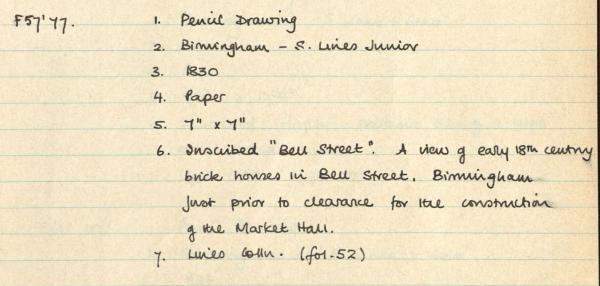 F57'77. 1. Pencil Drawing
2. Birmingham - S. Lines Junior
3. 1830
4. Paper
5. 7" x 7"
6. Inscribed "Bell Street". A view of early 18th century
brick houses in Bell Street, Birmingham
just prior to clearance for the construction
of the Market Hall.
7. Lines Colln. (fol. 52)